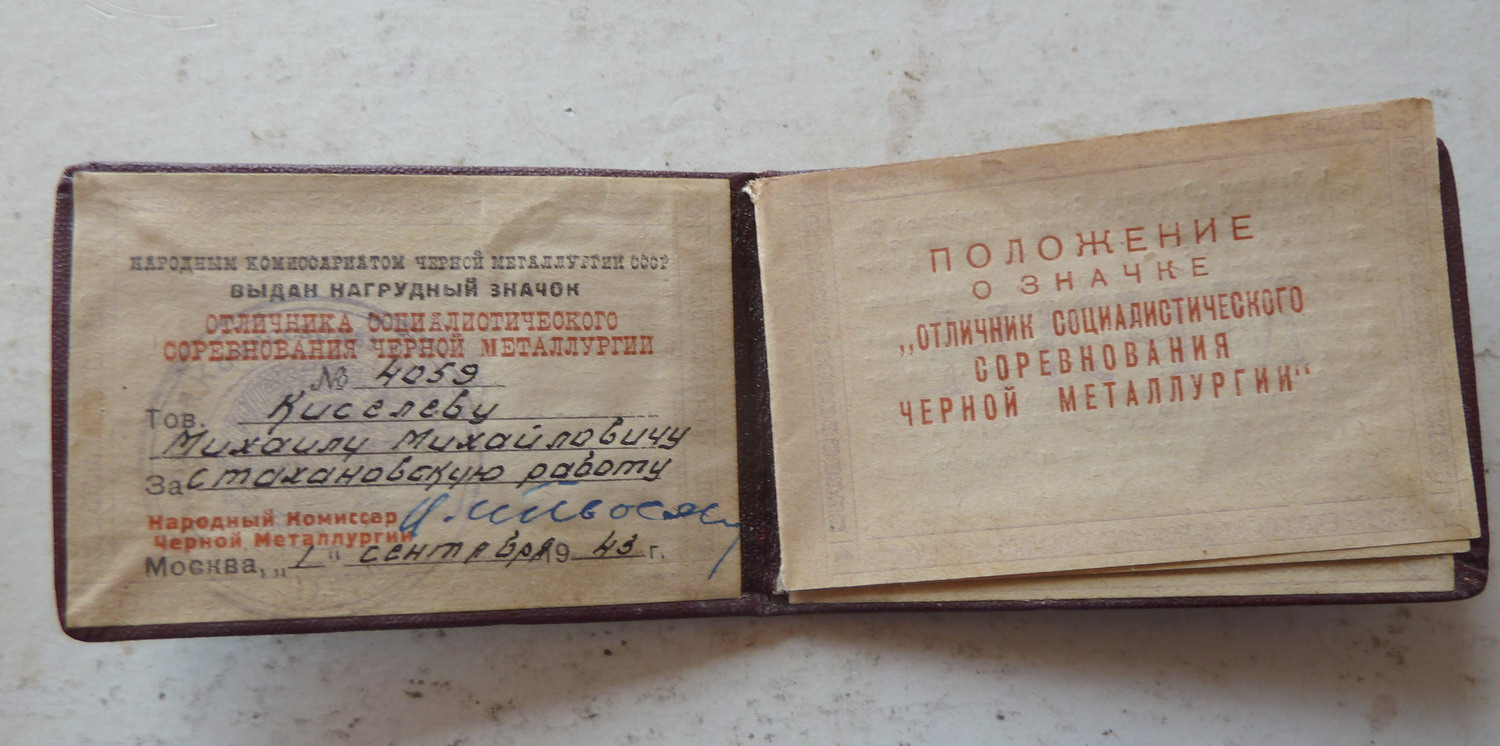 НАРОДНЫМ КОМИССАРИАТОМ ЧЕРНОЙ МЕТАЛЛУРГИИ СССР
ВЫДАН НАГРУДНЫЙ ЗНАЧОК
ОТЛИЧНИКА СОЦИАЛИСТИЧЕСКОГО
СОРЕВНОВАНИЯ ЧЕРНОЙ МЕТАЛЛУРГИИ
№ 4059
Тов. Киселеву
Михаилу Михайловичу
За стахановскую работу
Народный Комиссар
Черной Металлургии
Москва, „1" сентября 1943 г.
ПОЛОЖЕНИЕ
О ЗНАЧКЕ
„ОТЛИЧНИК СОЦИАЛИСТИЧЕСКОГО
СОРЕВНОВАНИЯ
ЧЕРНОЙ МЕТАЛЛУРГИИ"